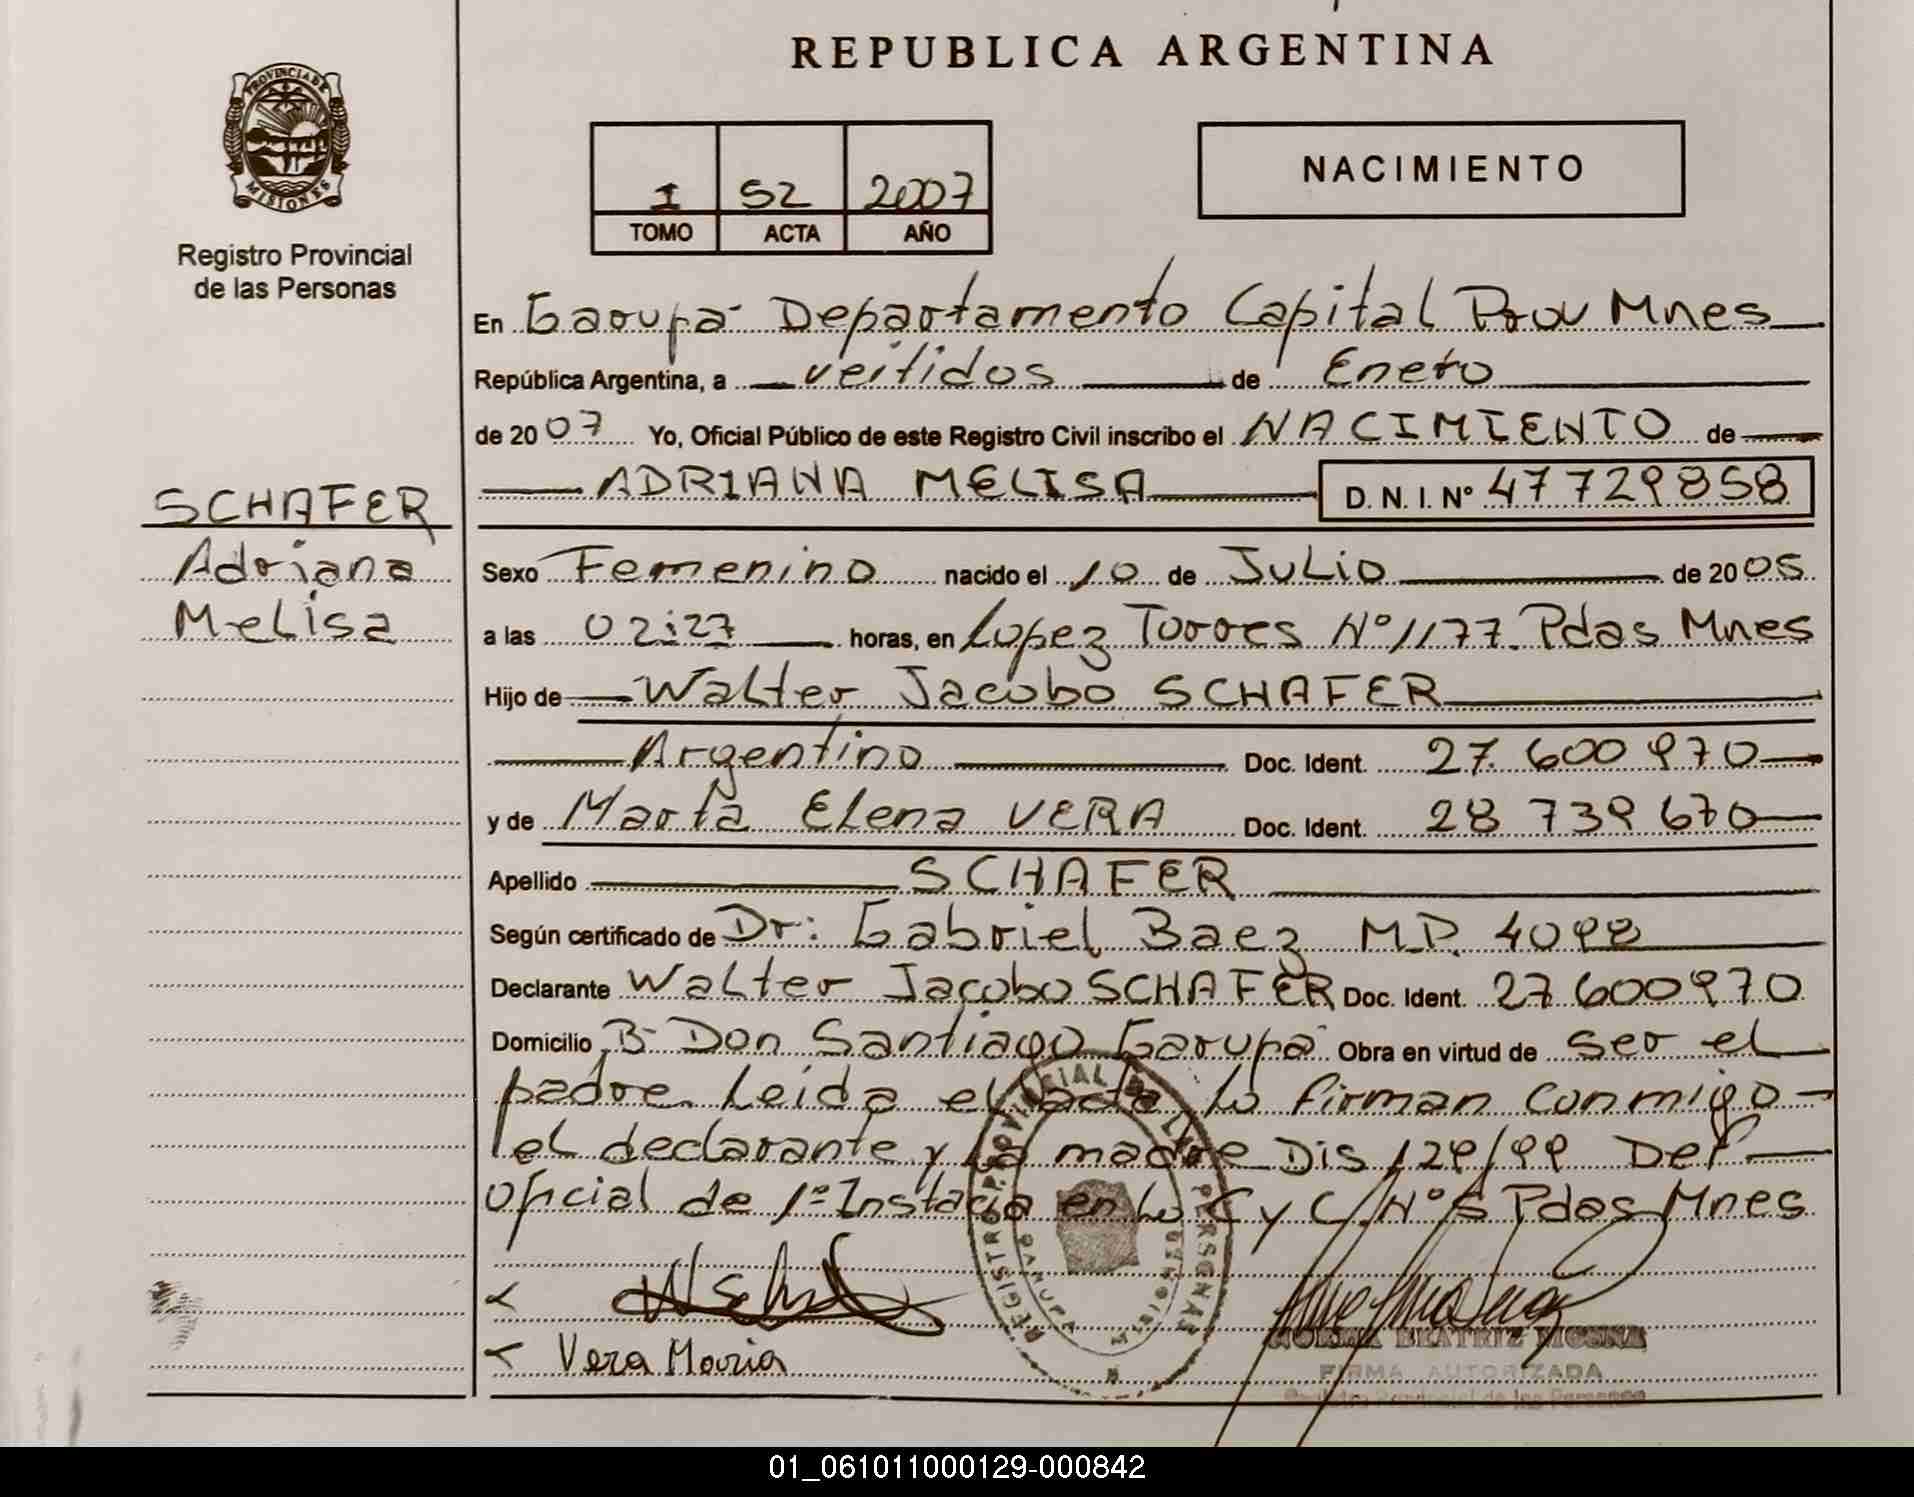 REPUBLICA ARGENTINA
PROVINCIA DE
MISIONES
Registro Provincial
de las Personas
1 52 2007
TOMO ACTA AÑO
NACIMIENTO
En Garupá Departamento Capital Prov Mnes
República Argentina, a veitidos de Enero
de 2007 Yo, Oficial Público de este Registro Civil inscribo el NACIMIENTO de
ADRIANA MELISA D. N. I. Nº 47729858
SCHAFER
Adriana
Melisa
Sexo Femenino nacido el 10 de Julio de 2005
a las 02:27 horas, en Lopez Torres Nº 1177. Pdas Mnes
Hijo de Walter Jacobo SCHAFER
Argentino Doc. Ident. 27. 600 970
y de María Elena VERA Doc. Ident. 28 739 670
Apellido SCHAFER
Según certificado de Dr: Gabriel Baez M.P. 4098
Declarante Walter Jacobo SCHAFER Doc. Ident. 27 600 970
Domicilio Bº Don Santiago Garupá Obra en virtud de ser el
padre. Leida el acta, lo firman conmigo
el declarante y la madre Dis 129/99 Def
Oficial de 1º Instacia en lo C y C. Nº 5 Pdas Mnes
REGISTRO PROVINCIAL DE LAS PERSONAS
Vera Maria
NORMA BEATRIZ
FIRMA AUTORIZADA
Registro Provincial de las Personas
01_061011000129-000842